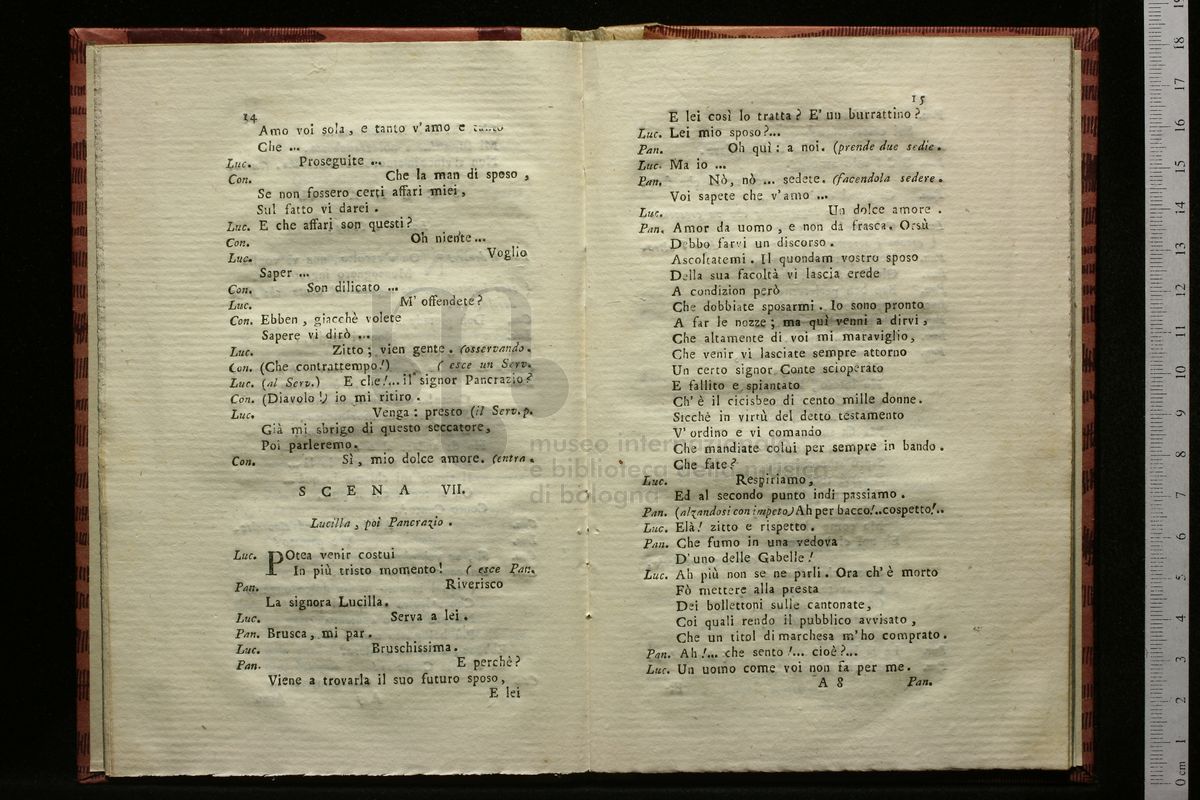 14
Amo voi sola, e tanto v'amo e tanto
Che ...
Luc. Proseguite ...
Con. Che la man di sposo,
Se non fossero certi affari miei,
Sul fatto vi darei.
Luc. E che affari son questi?
Con. Oh niente...
Luc. Voglio
Saper ...
Con. Son dilicato ...
Luc. M'offendete?
Con. Ebben, giacchè volete
Sapere vi dirò ...
Luc. Zitto; vien gente. (osservando.
Con. (Che contrattempo!) (esce un Serv.
Luc. (al Serv.) E che!... il signor Pancrazio?
Con. (Diavolo!) io mi ritiro.
Luc. Venga: presto (il Serv. p.
Già mi sbrigo di questo seccatore,
Poi parleremo.
Con. Sì, mio dolce amore. (entra.
SCENA VII.
Lucilla, poi Pancrazio.
Luc. POtea venir costui
In più tristo momento! (esce Pan.
Pan. Riverisco
La signora Lucilla.
Luc. Serva a lei.
Pan. Brusca, mi par.
Luc. Bruschissima.
Pan. E perchè?
Viene a trovarla il suo futuro sposo,
E lei
15
E lei così lo tratta? E' un burrattino?
Luc. Lei mio sposo?...
Pan. Oh quì: a noi. (prende due sedie.
Luc. Ma io ...
Pan. Nò, nò ... sedete. (facendola sedere.
Voi sapete che v'amo ...
Luc. Un dolce amore.
Pan. Amor da uomo, e non da frasca. Orsù
Debbo farvi un discorso.
Ascoltatemi. Il quondam vostro sposo
Della sua facoltà vi lascia erede
A condizion però
Che dobbiate sposarmi. Io sono pronto
A far le nozze; ma quì venni a dirvi,
Che altamente di voi mi maraviglio,
Che venir vi lasciate sempre attorno
Un certo signor Conte scioperato
E fallito e spiantato
Ch'è il cicisbeo di cento mille donne.
Sicchè in virtù del detto testamento
V'ordino e vi comando
Che mandiate colui per sempre in bando.
Che fate?
Luc. Respiriamo,
Ed al secondo punto indi passiamo.
Pan. (alzandosi con impeto) Ah per bacco!..cospetto!..
Luc. Elà! zitto e rispetto.
Pan. Che fumo in una vedova
D'uno delle Gabelle!
Luc. Ah più non se ne parli. Ora ch'è morto
Fò mettere alla presta
Dei bollettoni sulle cantonate,
Coi quali rendo il pubblico avvisato,
Che un titol di marchesa m'ho comprato.
Pan. Ah!... che sento!... cioè?...
Luc. Un uomo come voi non fa per me.
A 8 Pan.
museo internazionale
e biblioteca della musica
di bologna
0 cm 1 2 3 4 5 6 7 8 9 10 11 12 13 14 15 16 17 18 19